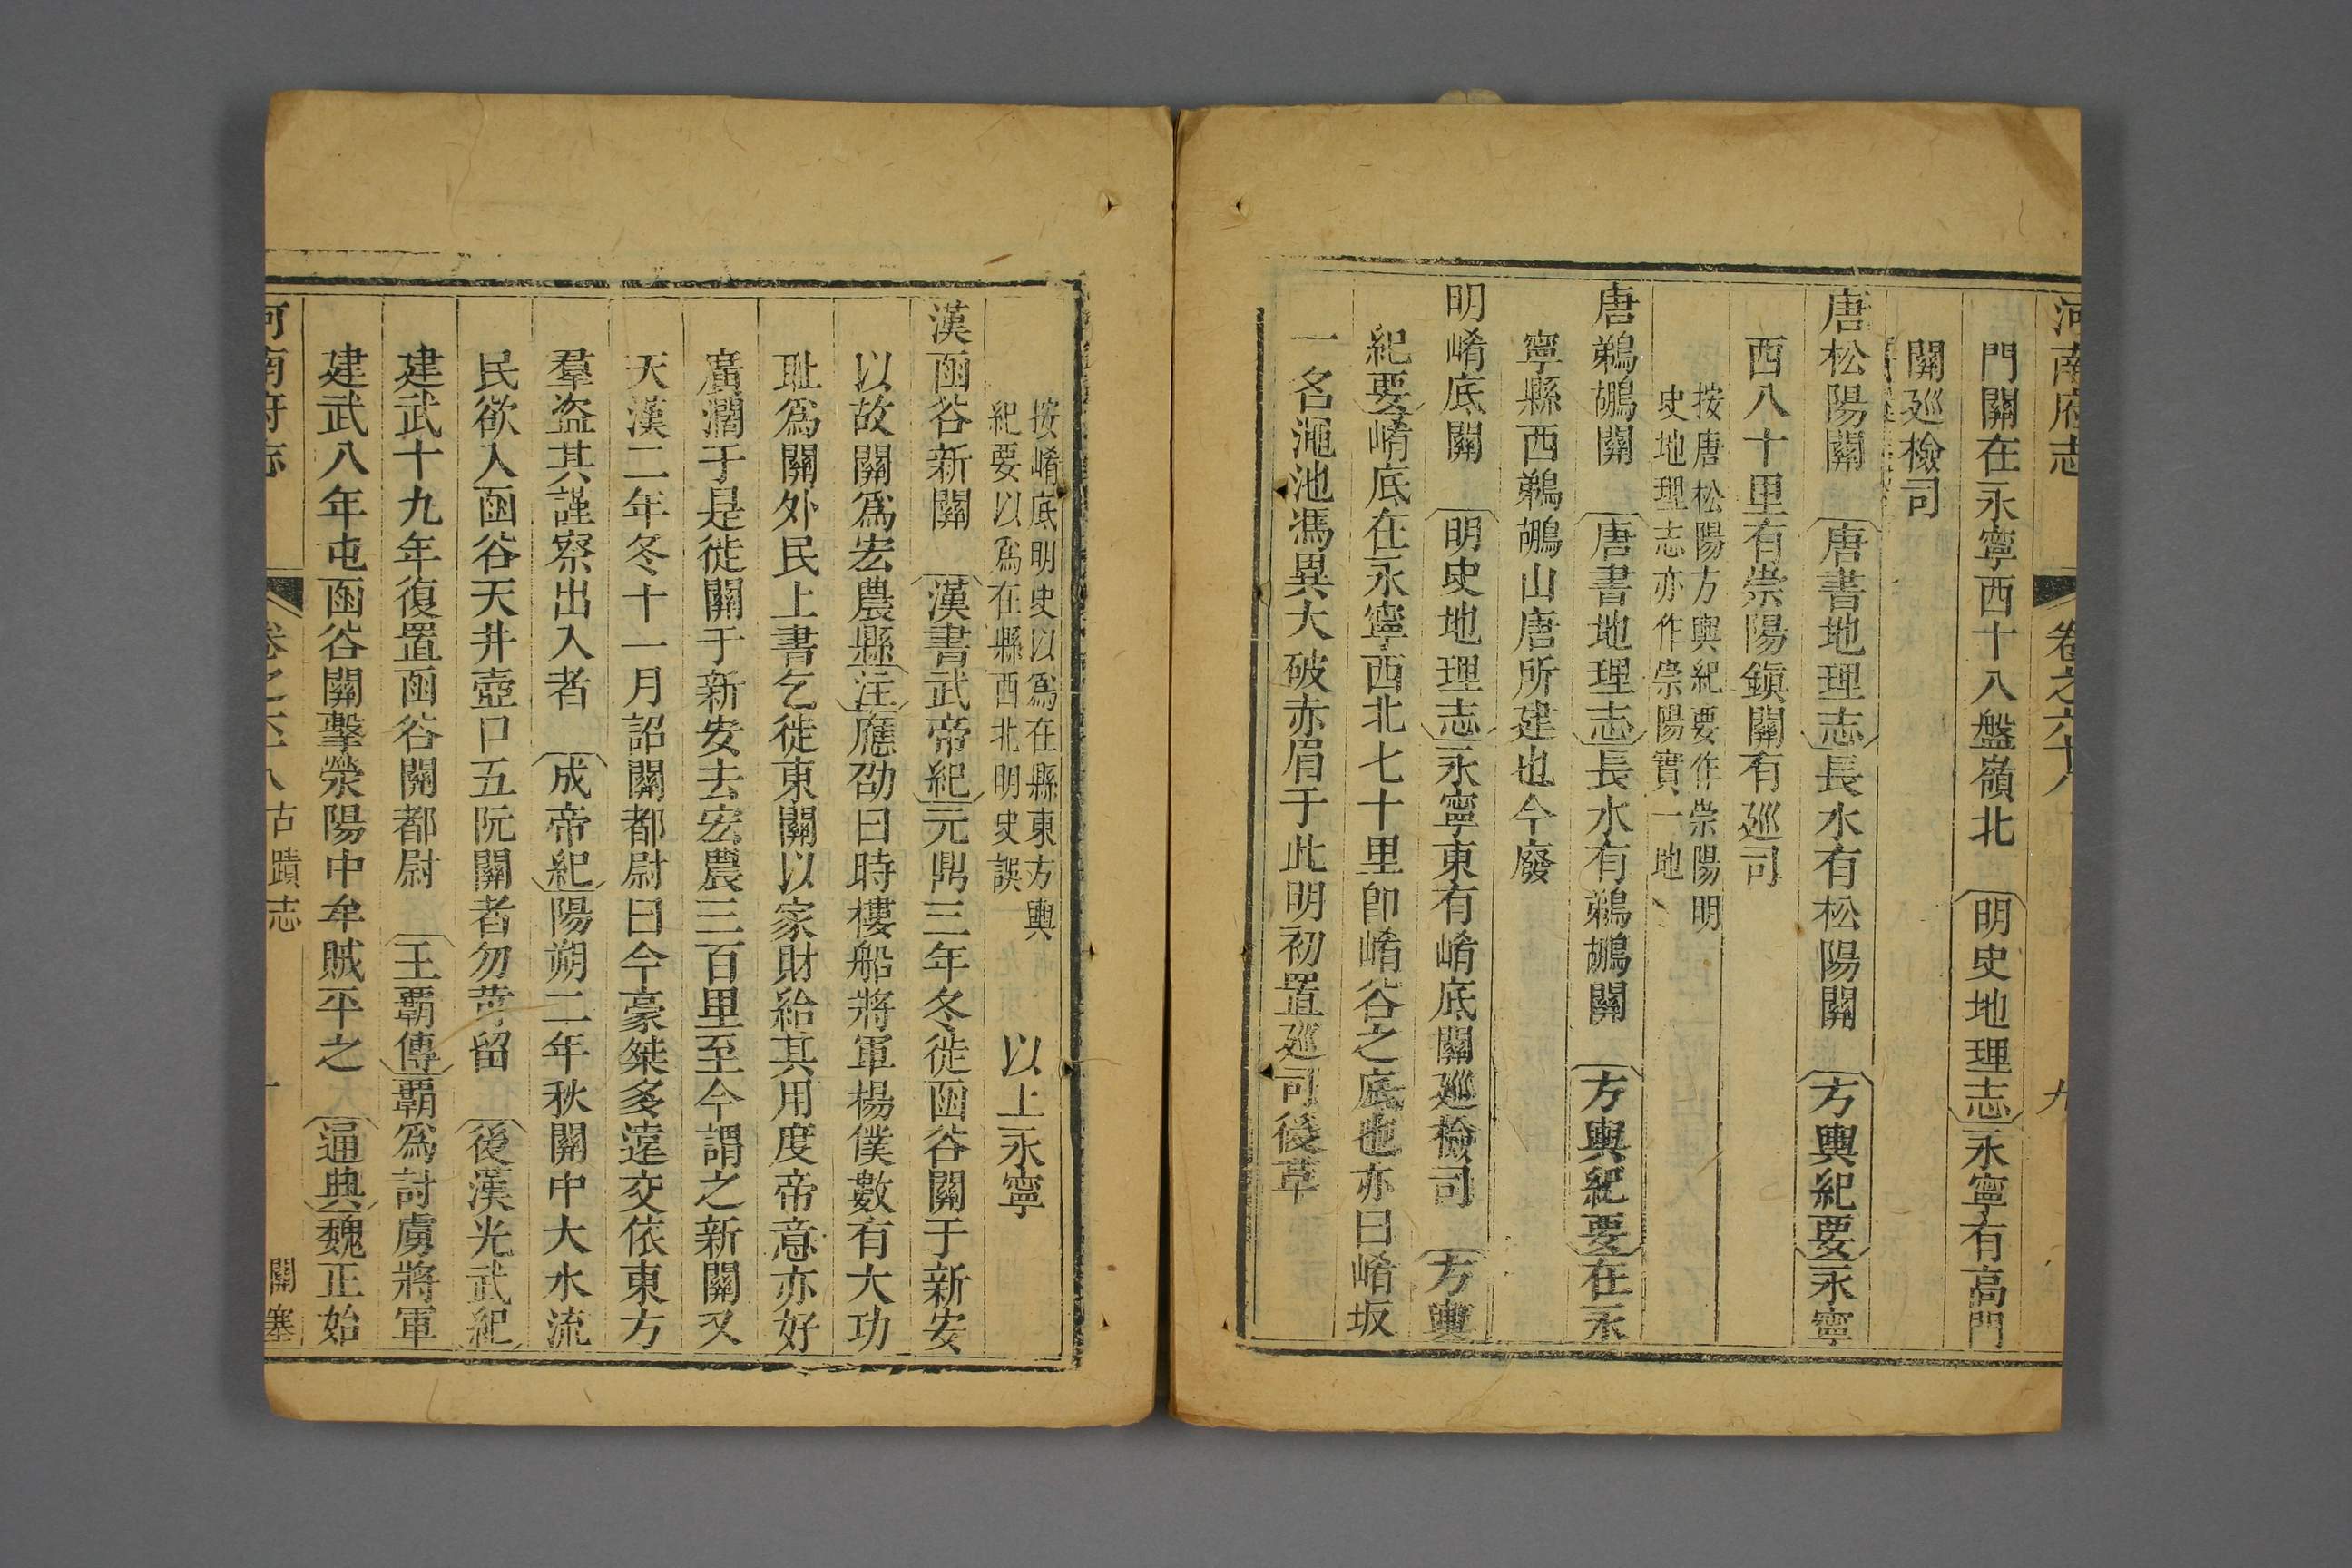 河南府志 卷之六十八 九
門關在永寧西十八盤嶺北 明史地理志永寧有高門
關廵檢司
唐松陽關 唐書地理志長水有松陽關 方輿紀要永寧
西八十里有崇陽鎮關有廵司
按唐松陽方輿紀要作崇陽明
史地理志亦作崇陽實一地
唐鵜鶘關 唐書地理志長水有鵜鶘關 方輿紀要在永
寧縣西鵜鶘山唐所建也今廢
明崤底關 明史地理志永寧東有崤底關廵檢司 方輿
紀要崤底在永寧西北七十里卽崤谷之底也亦曰崤坂
一名澠池馮異大破赤眉于此明初置廵司後革
按崤底明史以爲在縣東方輿
紀要以爲在縣西北明史誤
以上永寧
漢函谷新關 漢書武帝紀元鼎三年冬徙函谷關于新安
以故關爲宏農縣注應劭曰時樓船將軍楊僕數有大功
耻爲關外民上書乞徙東關以家財給其用度帝意亦好
廣濶于是徙關于新安去宏農三百里至今謂之新關又
天漢二年冬十一月詔關都尉曰今豪桀多遠交依東方
羣盜其謹察出入者 成帝紀陽朔二年秋關中大水流
民欲入函谷天井壺口五阮關者勿苛留 後漢光武紀
建武十九年復置函谷關都尉 王霸傳霸爲討虜將軍
建武八年屯函谷關擊滎陽中牟賊平之 通典魏正始
河南府志 卷之六十八 古蹟志 關塞